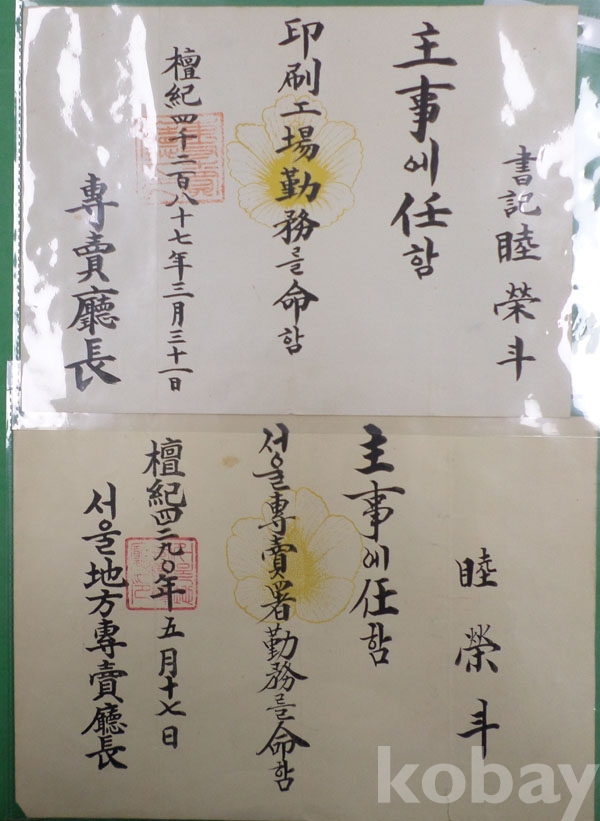 書記 睦榮斗
主事에任함
印刷工場勤務를命함
檀紀四千二百八十七年三月三十一日
專賣廳長
睦榮斗
主事에任함
서울專賣署勤務를命함
檀紀四二九〇年五月十七日
서울地方專賣廳長
kobay